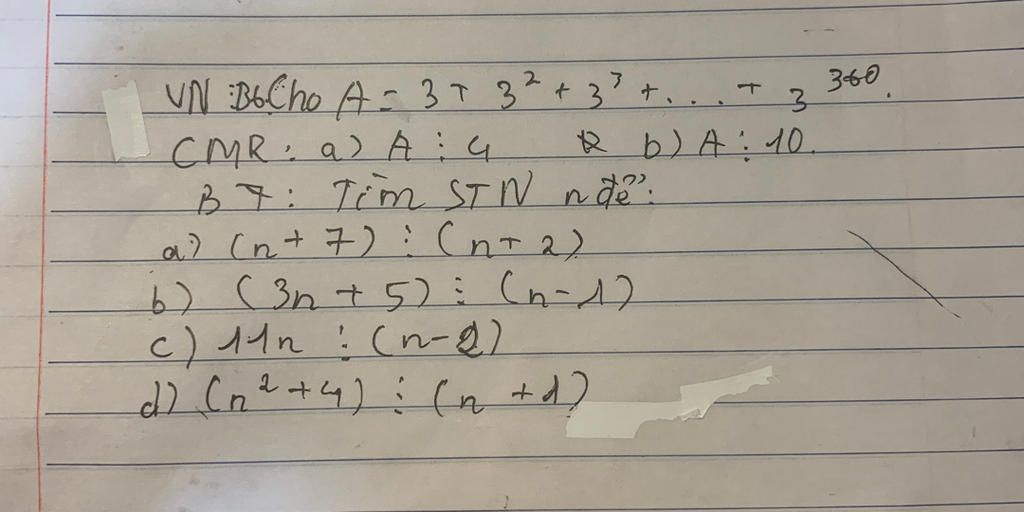 VN :B6Cho A = 3 + 3² + 3³ + . . . + 3³⁶⁰.
CMR : a) A ⋮ 4 b) A ⋮ 10.
B 7 : Tìm STN n để :
a) (n + 7) ⋮ (n + 2)
b) (3n + 5) ⋮ (n - 1)
c) 11n ⋮ (n - 2)
d) (n² + 4) ⋮ (n + 1)